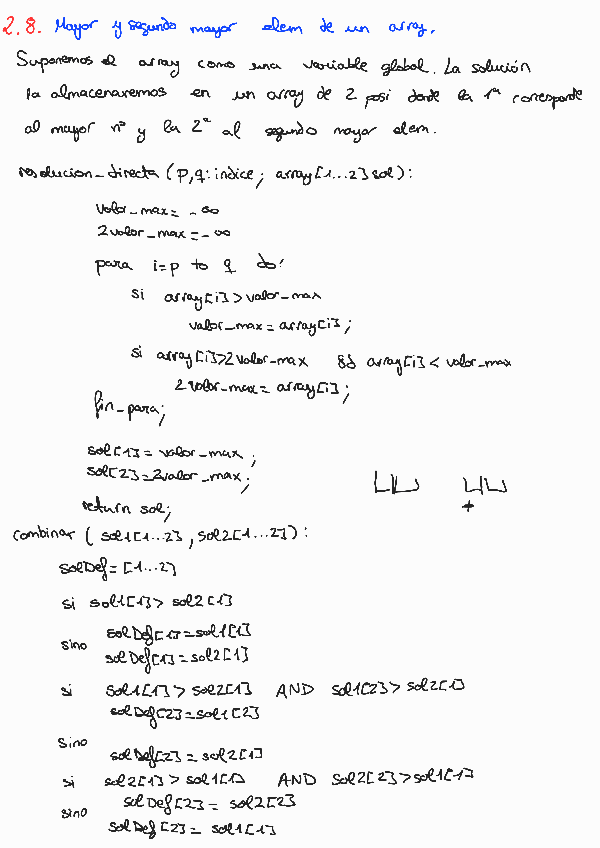 2.8. Mayor y segundo mayor elem de un array.
Suponemos el array como una variable global. La solución
la almacenaremos en un array de 2 posi donde la 1ª corresponde
al mayor nº y la 2ª al segundo mayor elem.
resolucion_directa (p,q: indice; array[1...2] sol):
valor_max = -∞
2valor_max = -∞
para i=p to q do:
si array[i] > valor_max
valor_max = array[i];
si array[i]>2valor_max && array[i] < valor_max
2valor_max = array[i];
fin_para;
sol[1] = valor_max;
sol[2] = 2valor_max;
return sol;
combinar (sol1[1...2], sol2[1...2]):
solDef = [1...2]
si sol1[1] > sol2[1]
solDef[1] = sol1[1]
sino
solDef[1] = sol2[1]
si sol1[1] > sol2[1] AND sol1[2] > sol2[1]
solDef[2] = sol1[2]
sino
solDef[2] = sol2[1]
si sol2[1] > sol1[1] AND sol2[2] > sol1[1]
solDef[2] = sol2[2]
sino
solDef[2] = sol1[1]